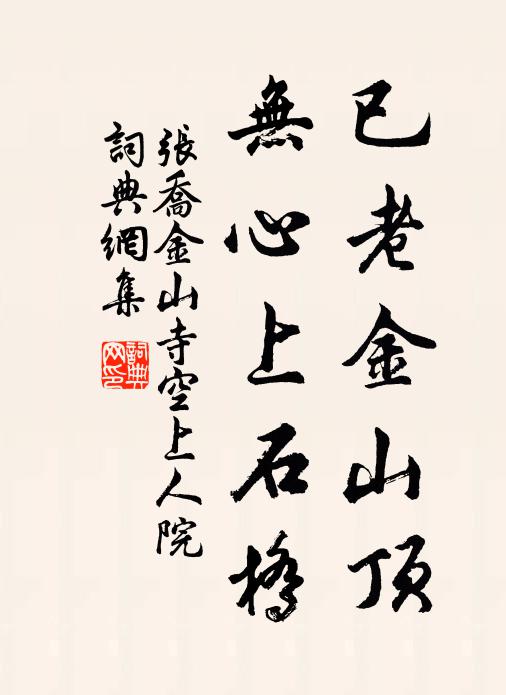 已老金山頂
無心上石橋
張喬金山寺空上人院
詞典網集
詞典
网印